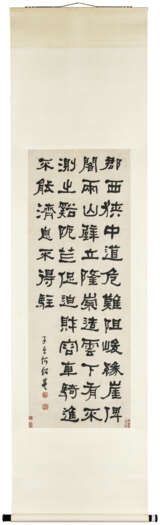 郡西狹中道危難阻峻緣崖俾
閣兩山壁立隆崇造雲下有不
測之谿阨芒促迫財容車騎進
不能濟息不得駐
子貞何紹基